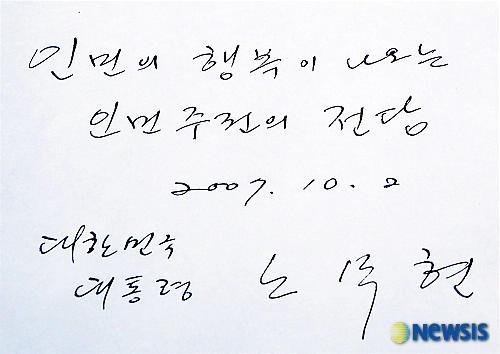 인민의 행복이 나오는
인민주권의 전당
2007. 10. 2
대한민국
대통령 노무현
NEWSIS